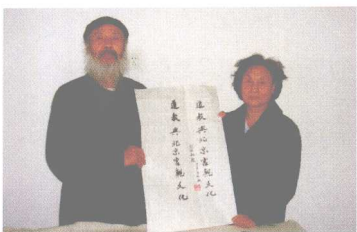 道教與北京宮觀文化
道教與北京宮觀文化